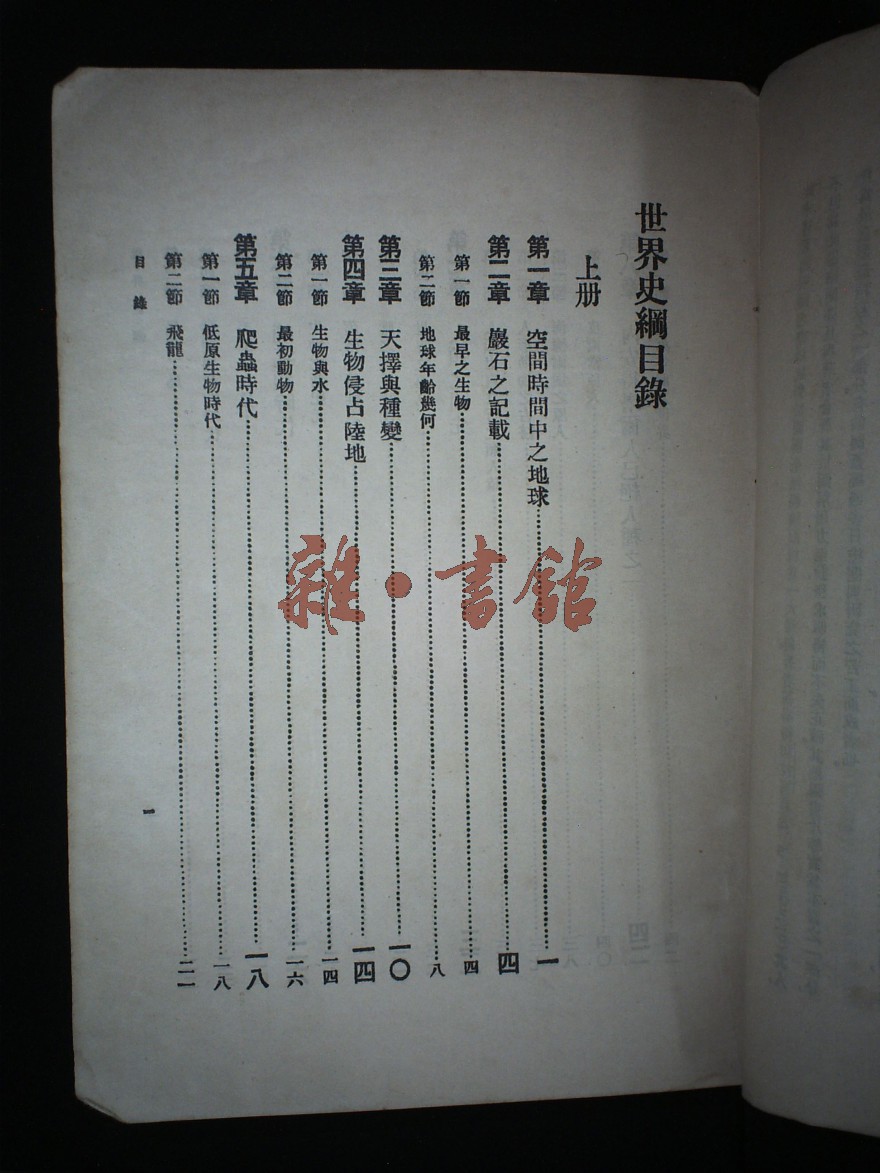 世界史綱目錄
上册
第一章 空間時間中之地球……一
第二章 巖石之記載……四
第一節 最早之生物……四
第二節 地球年齡幾何……八
第三章 天擇與種變……一〇
第四章 生物侵占陸地……一四
第一節 生物與水……一四
第二節 最初動物……一六
第五章 爬蟲時代……一八
第一節 低原生物時代……一八
第二節 飛龍……二一
目錄
一
雜·書館